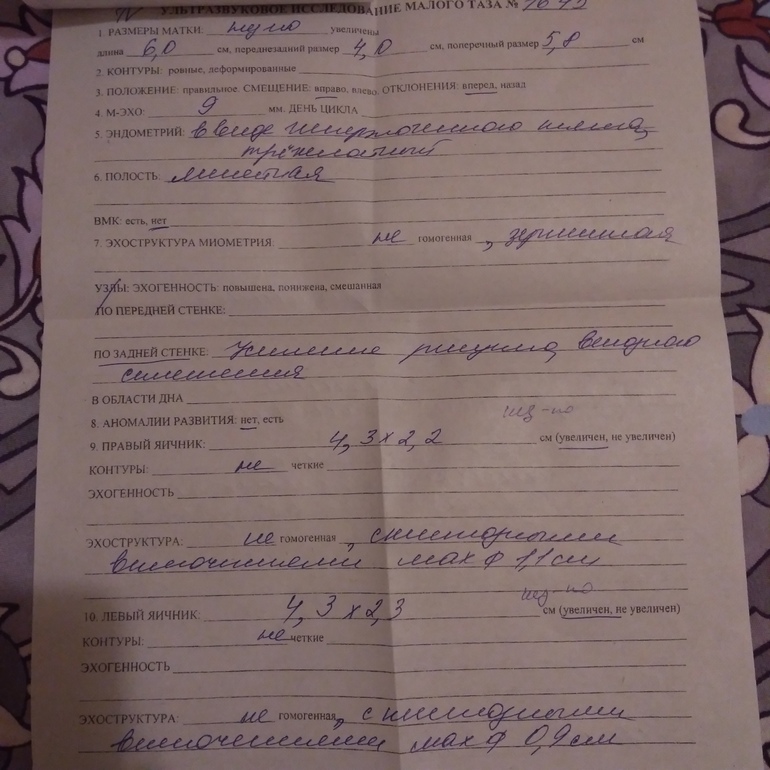 УЛЬТРАЗВУКОВОЕ ИССЛЕДОВАНИЕ МАЛОГО ТАЗА №
1. РАЗМЕРЫ МАТКИ: нез-но увеличены
длина 6,0 см, переднезадний размер 4,0 см, поперечный размер 5,8 см
2. КОНТУРЫ: ровные, деформированные
3. ПОЛОЖЕНИЕ: правильное. СМЕЩЕНИЕ: вправо, влево. ОТКЛОНЕНИЯ: вперед, назад
4. М-ЭХО: 9 мм. ДЕНЬ ЦИКЛА
5. ЭНДОМЕТРИЙ: в виде
6. ПОЛОСТЬ: линейная
ВМК: есть, нет
7. ЭХОСТРУКТУРА МИОМЕТРИЯ: не гомогенная, зернистая
УЗЛЫ: ЭХОГЕННОСТЬ: повышена, понижена, смешанная
ПО ПЕРЕДНЕЙ СТЕНКЕ:
ПО ЗАДНЕЙ СТЕНКЕ: Усиление рисунка, венозного
сплетения
В ОБЛАСТИ ДНА
8. АНОМАЛИИ РАЗВИТИЯ: нет, есть
нез-но
9. ПРАВЫЙ ЯИЧНИК: 4,3х2,2 см (увеличен, не увеличен)
КОНТУРЫ: не четкие
ЭХОГЕННОСТЬ
ЭХОСТРУКТУРА: не гомогенная, с кистозными
включениями мах ф 1,1 см
нез-но
10. ЛЕВЫЙ ЯИЧНИК: 4,3х2,3 см (увеличен, не увеличен)
КОНТУРЫ: не четкие
ЭХОГЕННОСТЬ
ЭХОСТРУКТУРА: не гомогенная, с кистозными
включениями мах ф 0,9 см